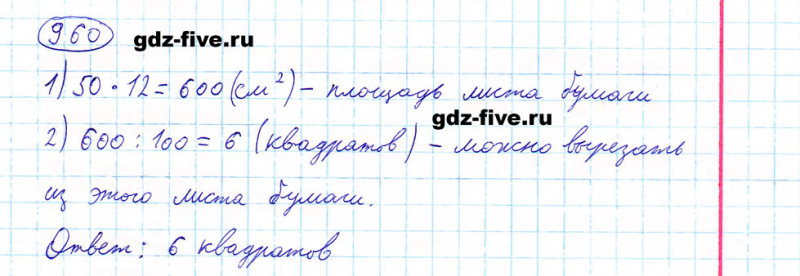 960
gdz-five.ru
1) 50 · 12 = 600 (см²) – площадь листа бумаги
gdz-five.ru
2) 600 : 100 = 6 (квадратов) – можно вырезать
из этого листа бумаги.
Ответ: 6 квадратов